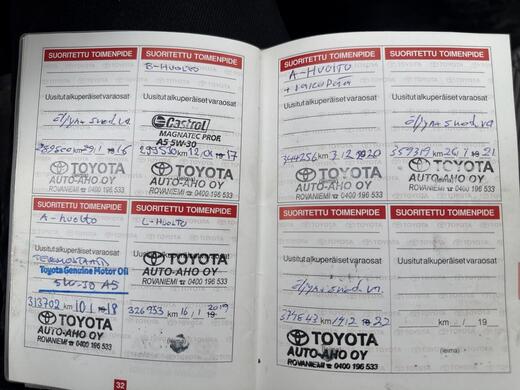 SUORITETTU TOIMENPIDE
Uusitut alkuperäiset varaosat
öljy + suod.va
km
16
TOYOTA
AUTO-AHO OY
ROVANIEMI ☎ 0400 196 533
SUORITETTU TOIMENPIDE
B-HUOLTO
Uusitut alkuperäiset varaosat
Castrol
MAGNATEC PROF.
A5 5W-30
299530 km 12.01 17
TOYOTA
AUTO-AHO OY
ROVANIEMI ☎ 0400 196 533
SUORITETTU TOIMENPIDE
A-HUOLTO
Uusitut alkuperäiset varaosat
Toyota Genuine Motor Oil
5W-30 A5
313702 km 10.1 18
TOYOTA
AUTO-AHO OY
ROVANIEMI ☎ 0400 196 533
SUORITETTU TOIMENPIDE
L-HUOLTO
Uusitut alkuperäiset varaosat
TOYOTA
AUTO-AHO OY
ROVANIEMI ☎ 0400 196 533
326933 km 16.1 2019
32
SUORITETTU TOIMENPIDE
A-HUOLTO
Uusitut alkuperäiset varaosat
öljy + suod.va
344256 km 3.12 2020
TOYOTA
AUTO-AHO OY
ROVANIEMI ☎ 0400 196 533
SUORITETTU TOIMENPIDE
Uusitut alkuperäiset varaosat
öljy + suod.va
359319 km 21
TOYOTA
AUTO-AHO OY
ROVANIEMI ☎ 0400 196 533
SUORITETTU TOIMENPIDE
Uusitut alkuperäiset varaosat
öljy + suod.va
km 19.12 22
TOYOTA
AUTO-AHO OY
ROVANIEMI ☎ 0400 196 533
SUORITETTU TOIMENPIDE
Uusitut alkuperäiset varaosat
km __/__ 19
(leima)